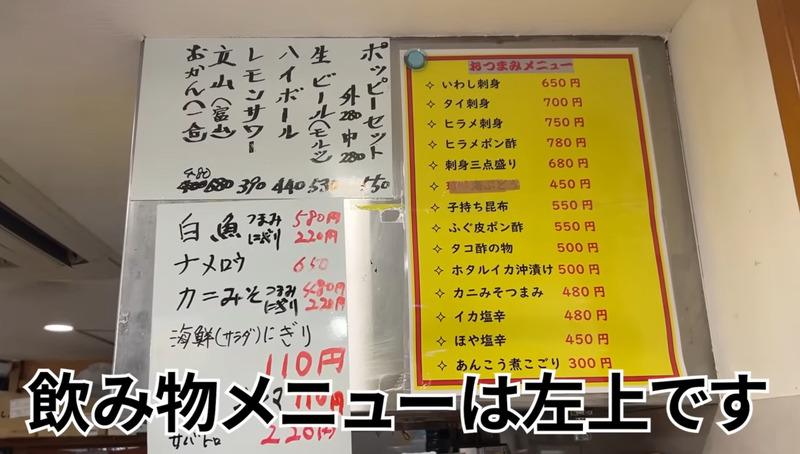 ホッピーセット 550
外280 中280
生ビール(モルツ) 530
ハイボール 440
レモンサワー 390
立山(富山) 680
おかん(一合) 480
白魚 つまみ 580円
にぎり 220円
ナメロウ 650
カニみそ つまみ 480円
にぎり 220円
海鮮(サラダ)にぎり
110円
110円
サバトロ 220円
おつまみメニュー
いわし刺身 650円
タイ刺身 700円
ヒラメ刺身 750円
ヒラメポン酢 780円
刺身三点盛り 680円
450円
子持ち昆布 550円
ふぐ皮ポン酢 550円
タコ酢の物 500円
ホタルイカ沖漬け 500円
カニみそつまみ 480円
イカ塩辛 480円
ほや塩辛 450円
あんこう煮こごり 300円
飲み物メニューは左上です